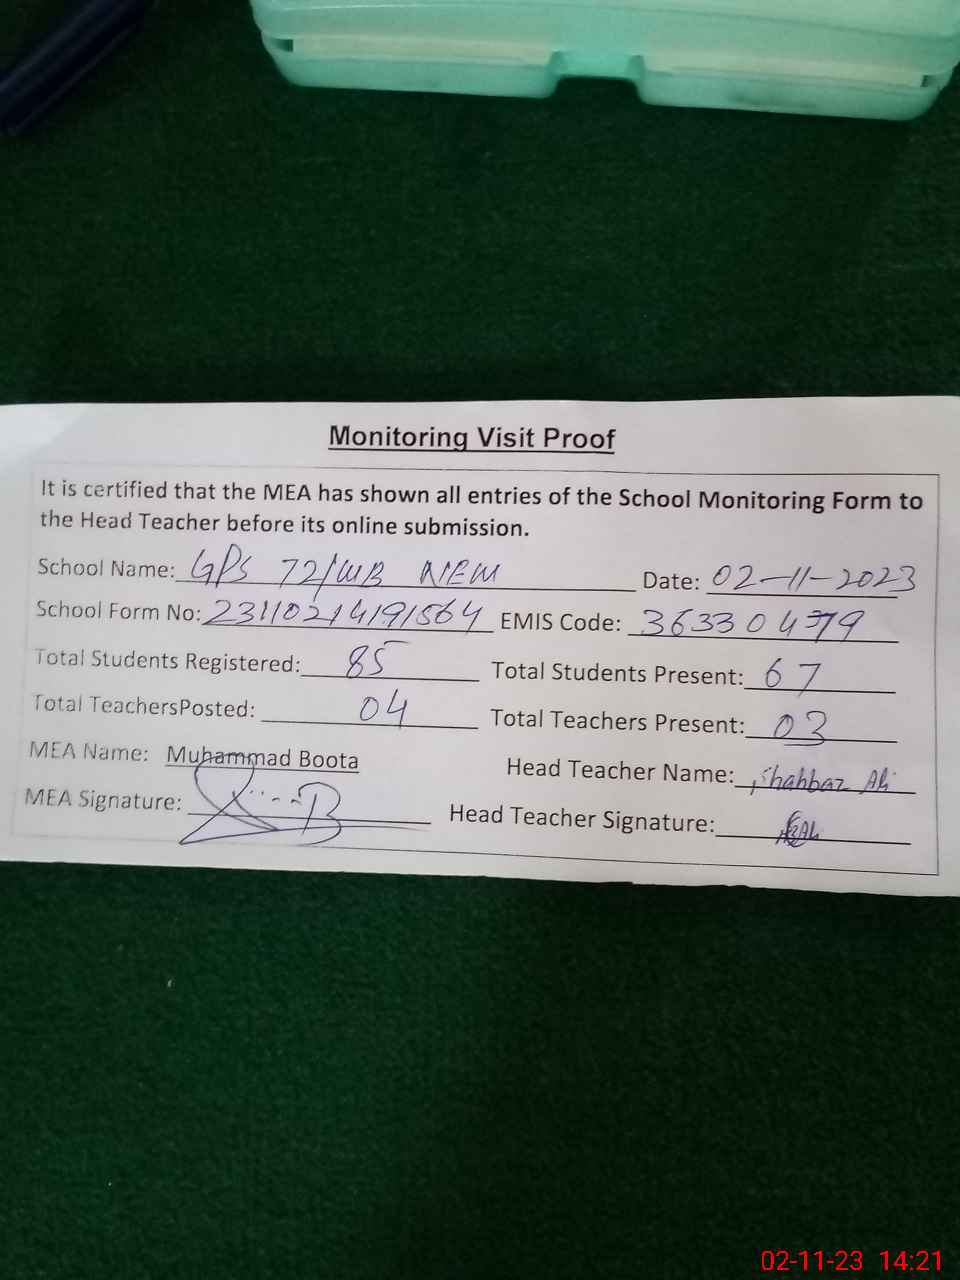 Monitoring Visit Proof
It is certified that the MEA has shown all entries of the School Monitoring Form to
the Head Teacher before its online submission.
School Name: GPS 72/WB NEW Date: 02-11-2023
School Form No: 23110214191564 EMIS Code: 36330479
Total Students Registered: 85 Total Students Present: 67
Total TeachersPosted: 04 Total Teachers Present: 03
MEA Name: Muhammad Boota Head Teacher Name: Shahbaz Ali
MEA Signature: Head Teacher Signature:
02-11-23 14:21